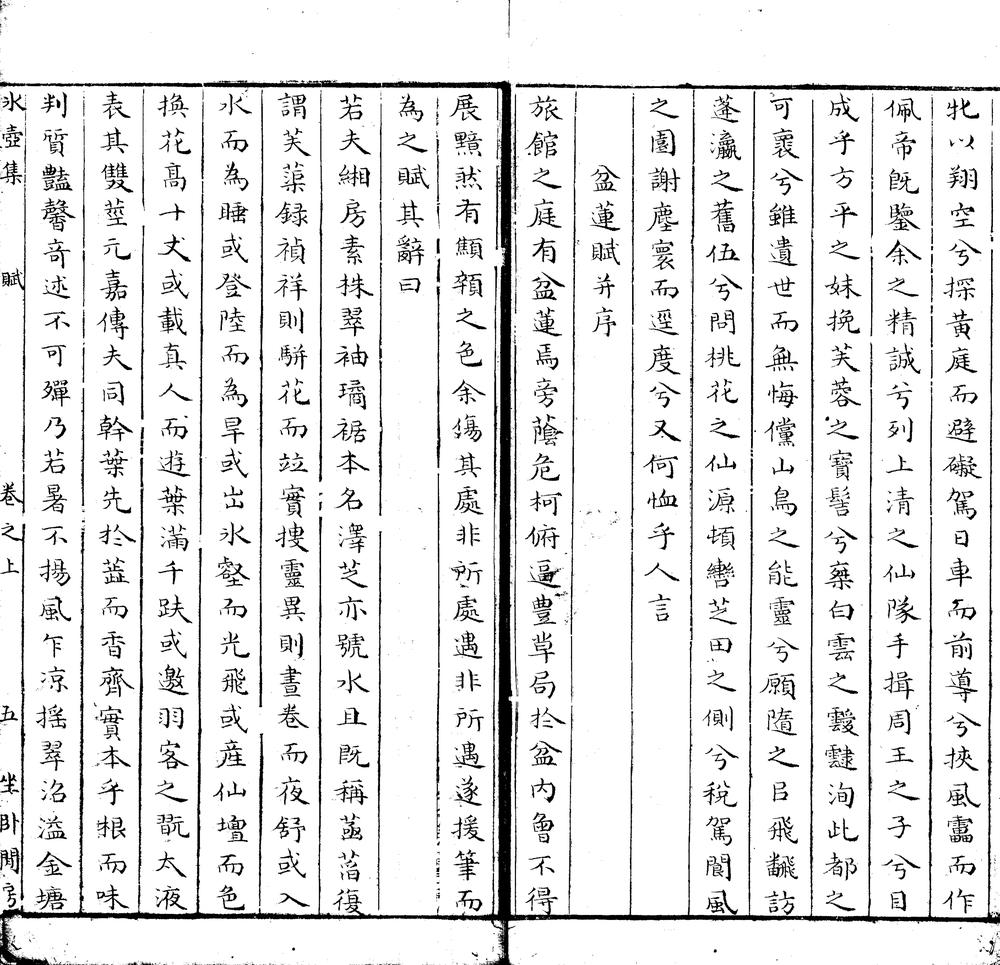 牝以翔空兮探黃庭而避礙駕日車而前導兮挾風靁而作
佩帝既鑒余之精誠兮列上清之仙隊手揖周王之子兮目
成乎方平之妹挽芙蓉之寶髻兮藥白雲之靉靆洵此都之
可褱兮雖遺世而無悔儻山鳥之能靈兮願隨之㠯飛飜訪
蓬瀛之舊伍兮問桃花之仙源頓轡芝田之側兮稅駕閬風
之園謝塵寰而遥度兮又何恤乎人言
盆蓮賦并序
旅館之庭有盆蓮焉旁蔭危柯俯逼豊草局於盆内會不得
展黯然有顦顇之色余傷其處非所處遇非所遇遂援筆而
為之賦其辭曰
若夫緗房素株翠袖璚裾本名澤芝亦號水且既稱菡萏復
謂芙蕖録禎祥則駢花而竝實摟靈異則晝卷而夜舒或入
水而為睡或登陸而為旱或出氷壑而光飛或産仙壇而色
換花高十丈或載真人而遊葉滿千趺或邀羽客之翫太液
表其雙莖元嘉傳夫同幹葉先於葢而香齊實本乎根而味
判質豔馨奇述不可殫乃若暑不揚風乍凉揺翠沼溢金塘
氷壺集 賦 卷之上 五 坐卧閒房